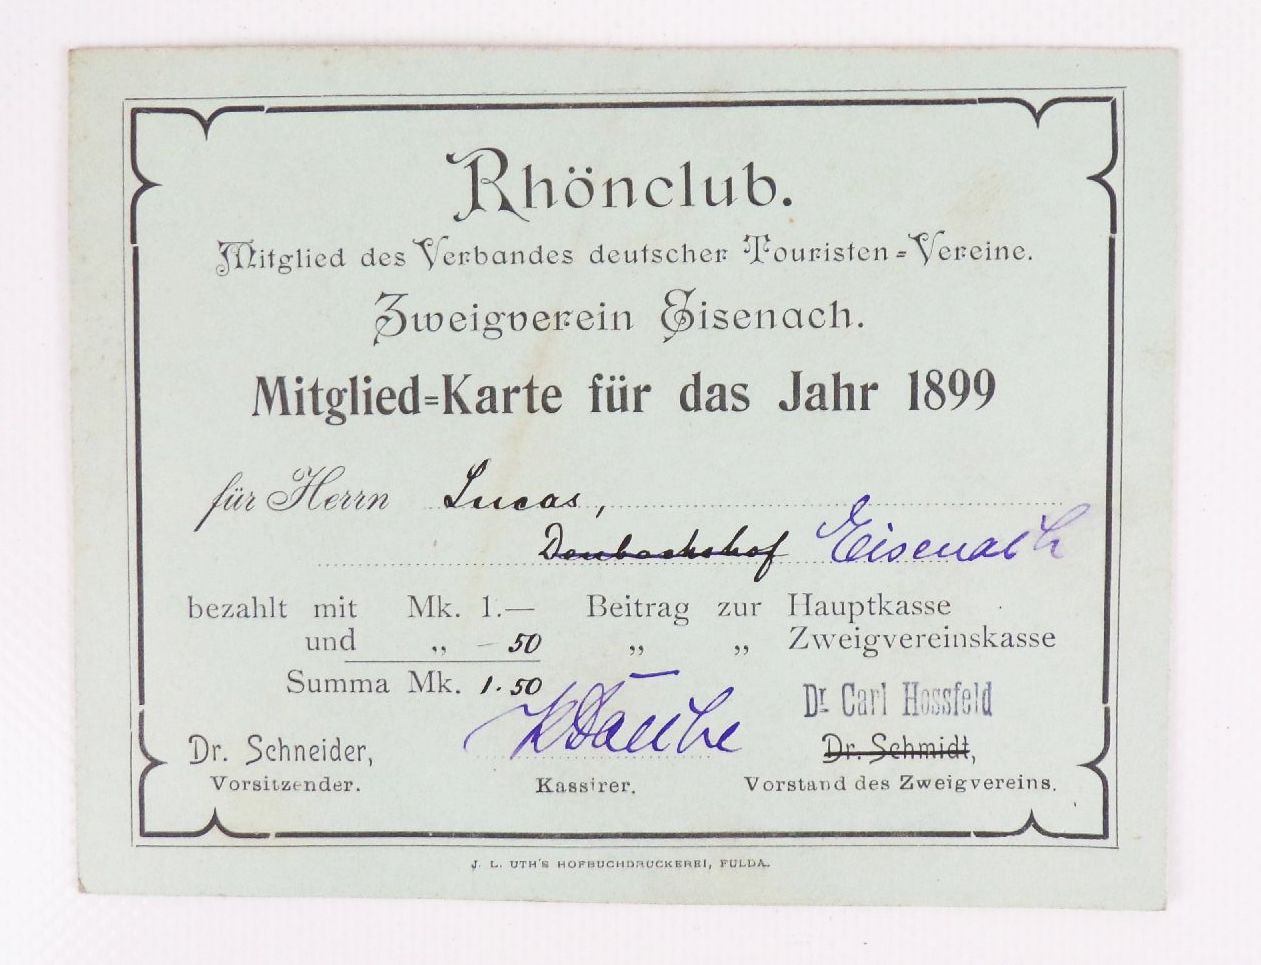 Rhönclub.
Mitglied des Verbandes deutscher Touristen=Vereine.
Zweigverein Eisenach.
Mitglied=Karte für das Jahr 1899
für Herrn Lucas,
Eisenach
bezahlt mit Mk. 1.— Beitrag zur Hauptkasse
und „ – 50 „ „ Zweigvereinskasse
Summa Mk. 1.50
Dr. Carl Hossfeld
Dr. Schneider, Dr. Schmidt,
Vorsitzender. Kassirer. Vorstand des Zweigvereins.
J. L. UTH'S HOFBUCHDRUCKEREI, FULDA.